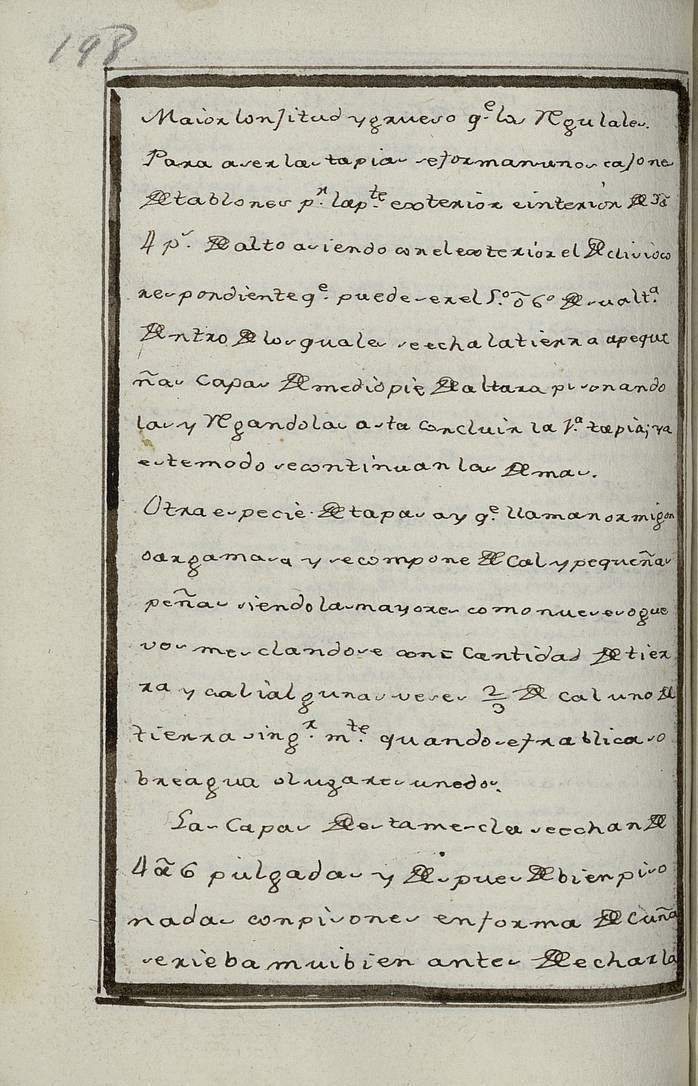 198
Maior lonjitud y grueso q.e las Regulales.
Para aser las tapias se forman unos cajone
de tablones p.r la p.te exterior e interior de 3 ã
4 p.s de alto asiendo con el exterior el declivio co
respondiente q.e puede ser el 5.º õ 6º de su alt.a
dentro de los quales se echa la tierra a peque
ñas capas de medio pie de altara pisonando
las y Regandolas asta concluir la 1.a tapia; y a
este modo se continuan las demas.
Otra especie de tapas ay q.e llaman ormigon
o argamasa y se compone de cal y pequeñas
peñas siendo las mayores como nueses o gue
vos mesclandose con cantidad de tier
ra y cal i algunas veses 2/3 de cal uno de
tierra sing.r m.te quando se frablica so
bre agua o lugares unedos.
Las capas de esta mescla se echan de
4 ã 6 pulgadas y despues de bien piso
nadas con pisones en forma de cuña
se rieba mui bien antes de echar la